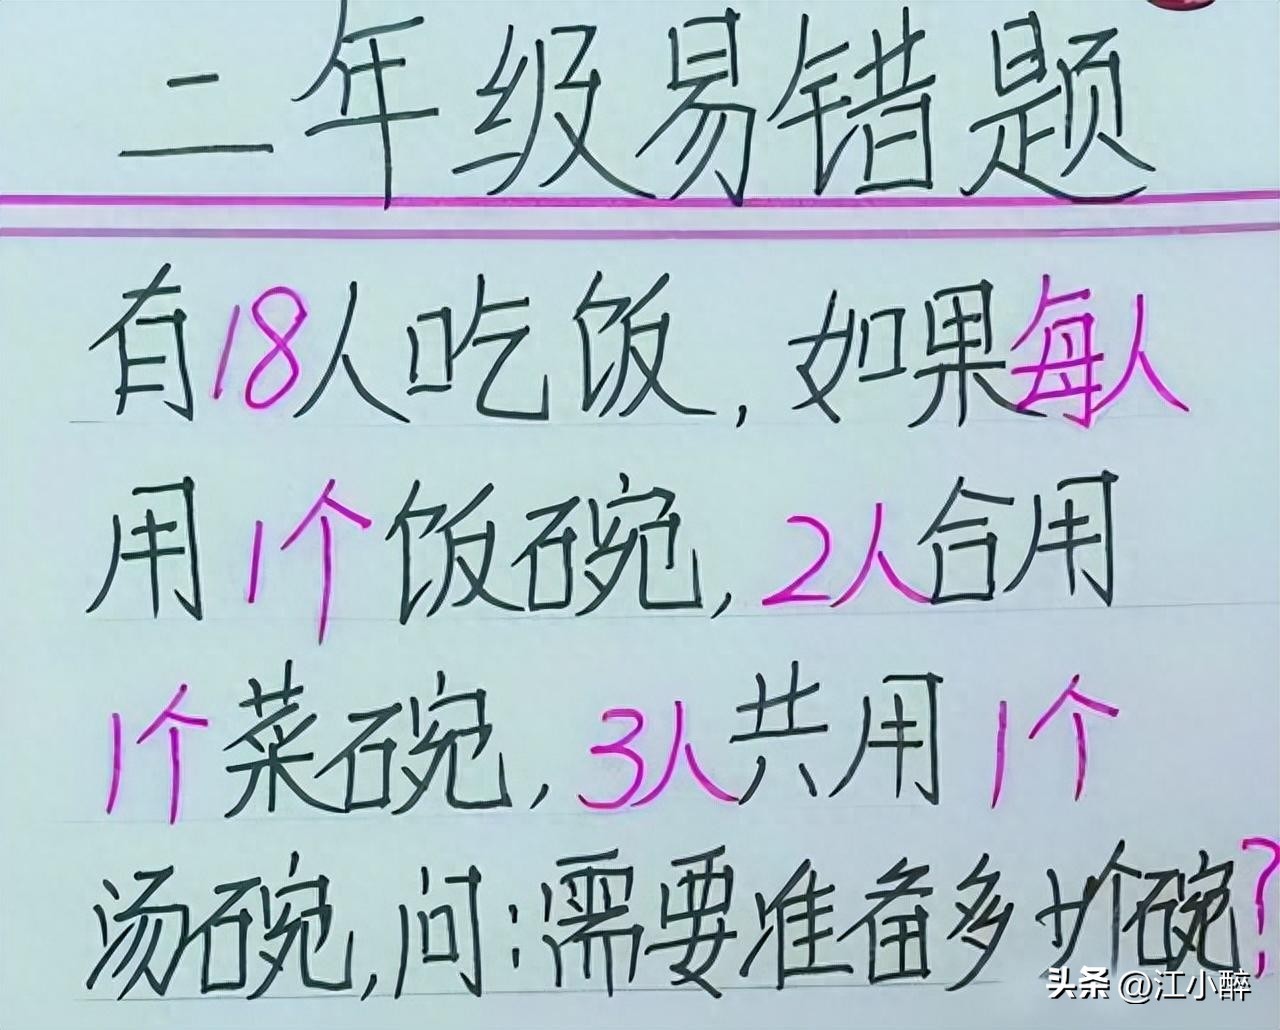 二年级易错题
有18人吃饭,如果每人
用1个饭碗,2人合用
1个菜碗,3人共用1个
汤碗,问:需要准备多少个碗?
头条 @江小醉